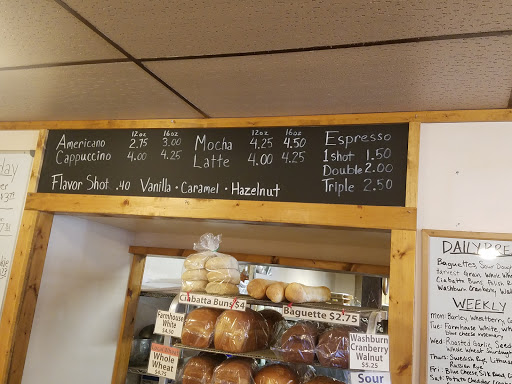 12oz 16oz
Americano 2.75 3.00
Cappuccino 4.00 4.25
12oz 16oz
Mocha 4.25 4.50
Latte 4.00 4.25
Espresso
1 shot 1.50
Double 2.00
Triple 2.50
Flavor Shot .40 Vanilla · Caramel · Hazelnut
Ciabatta Buns $4
Baguette $2.75
Farmhouse
White
$4.50
Washburn
Cranberry
Walnut
$5.25
Whole Wheat
Sour
DAILY
Baguettes, Sour
Harvest Grain, Whole
Ciabatta Buns,
Washburn Cranberry,
WEEKLY
Mon: Barley, Wheatberry,
Tue: Farmhouse White,
Blue cheese rosemary
Wed: Roasted Garlic,
Whole Wheat
Thurs: Swedish Rye,
Russian Rye
Fri: Blues Cheese,
Sat: